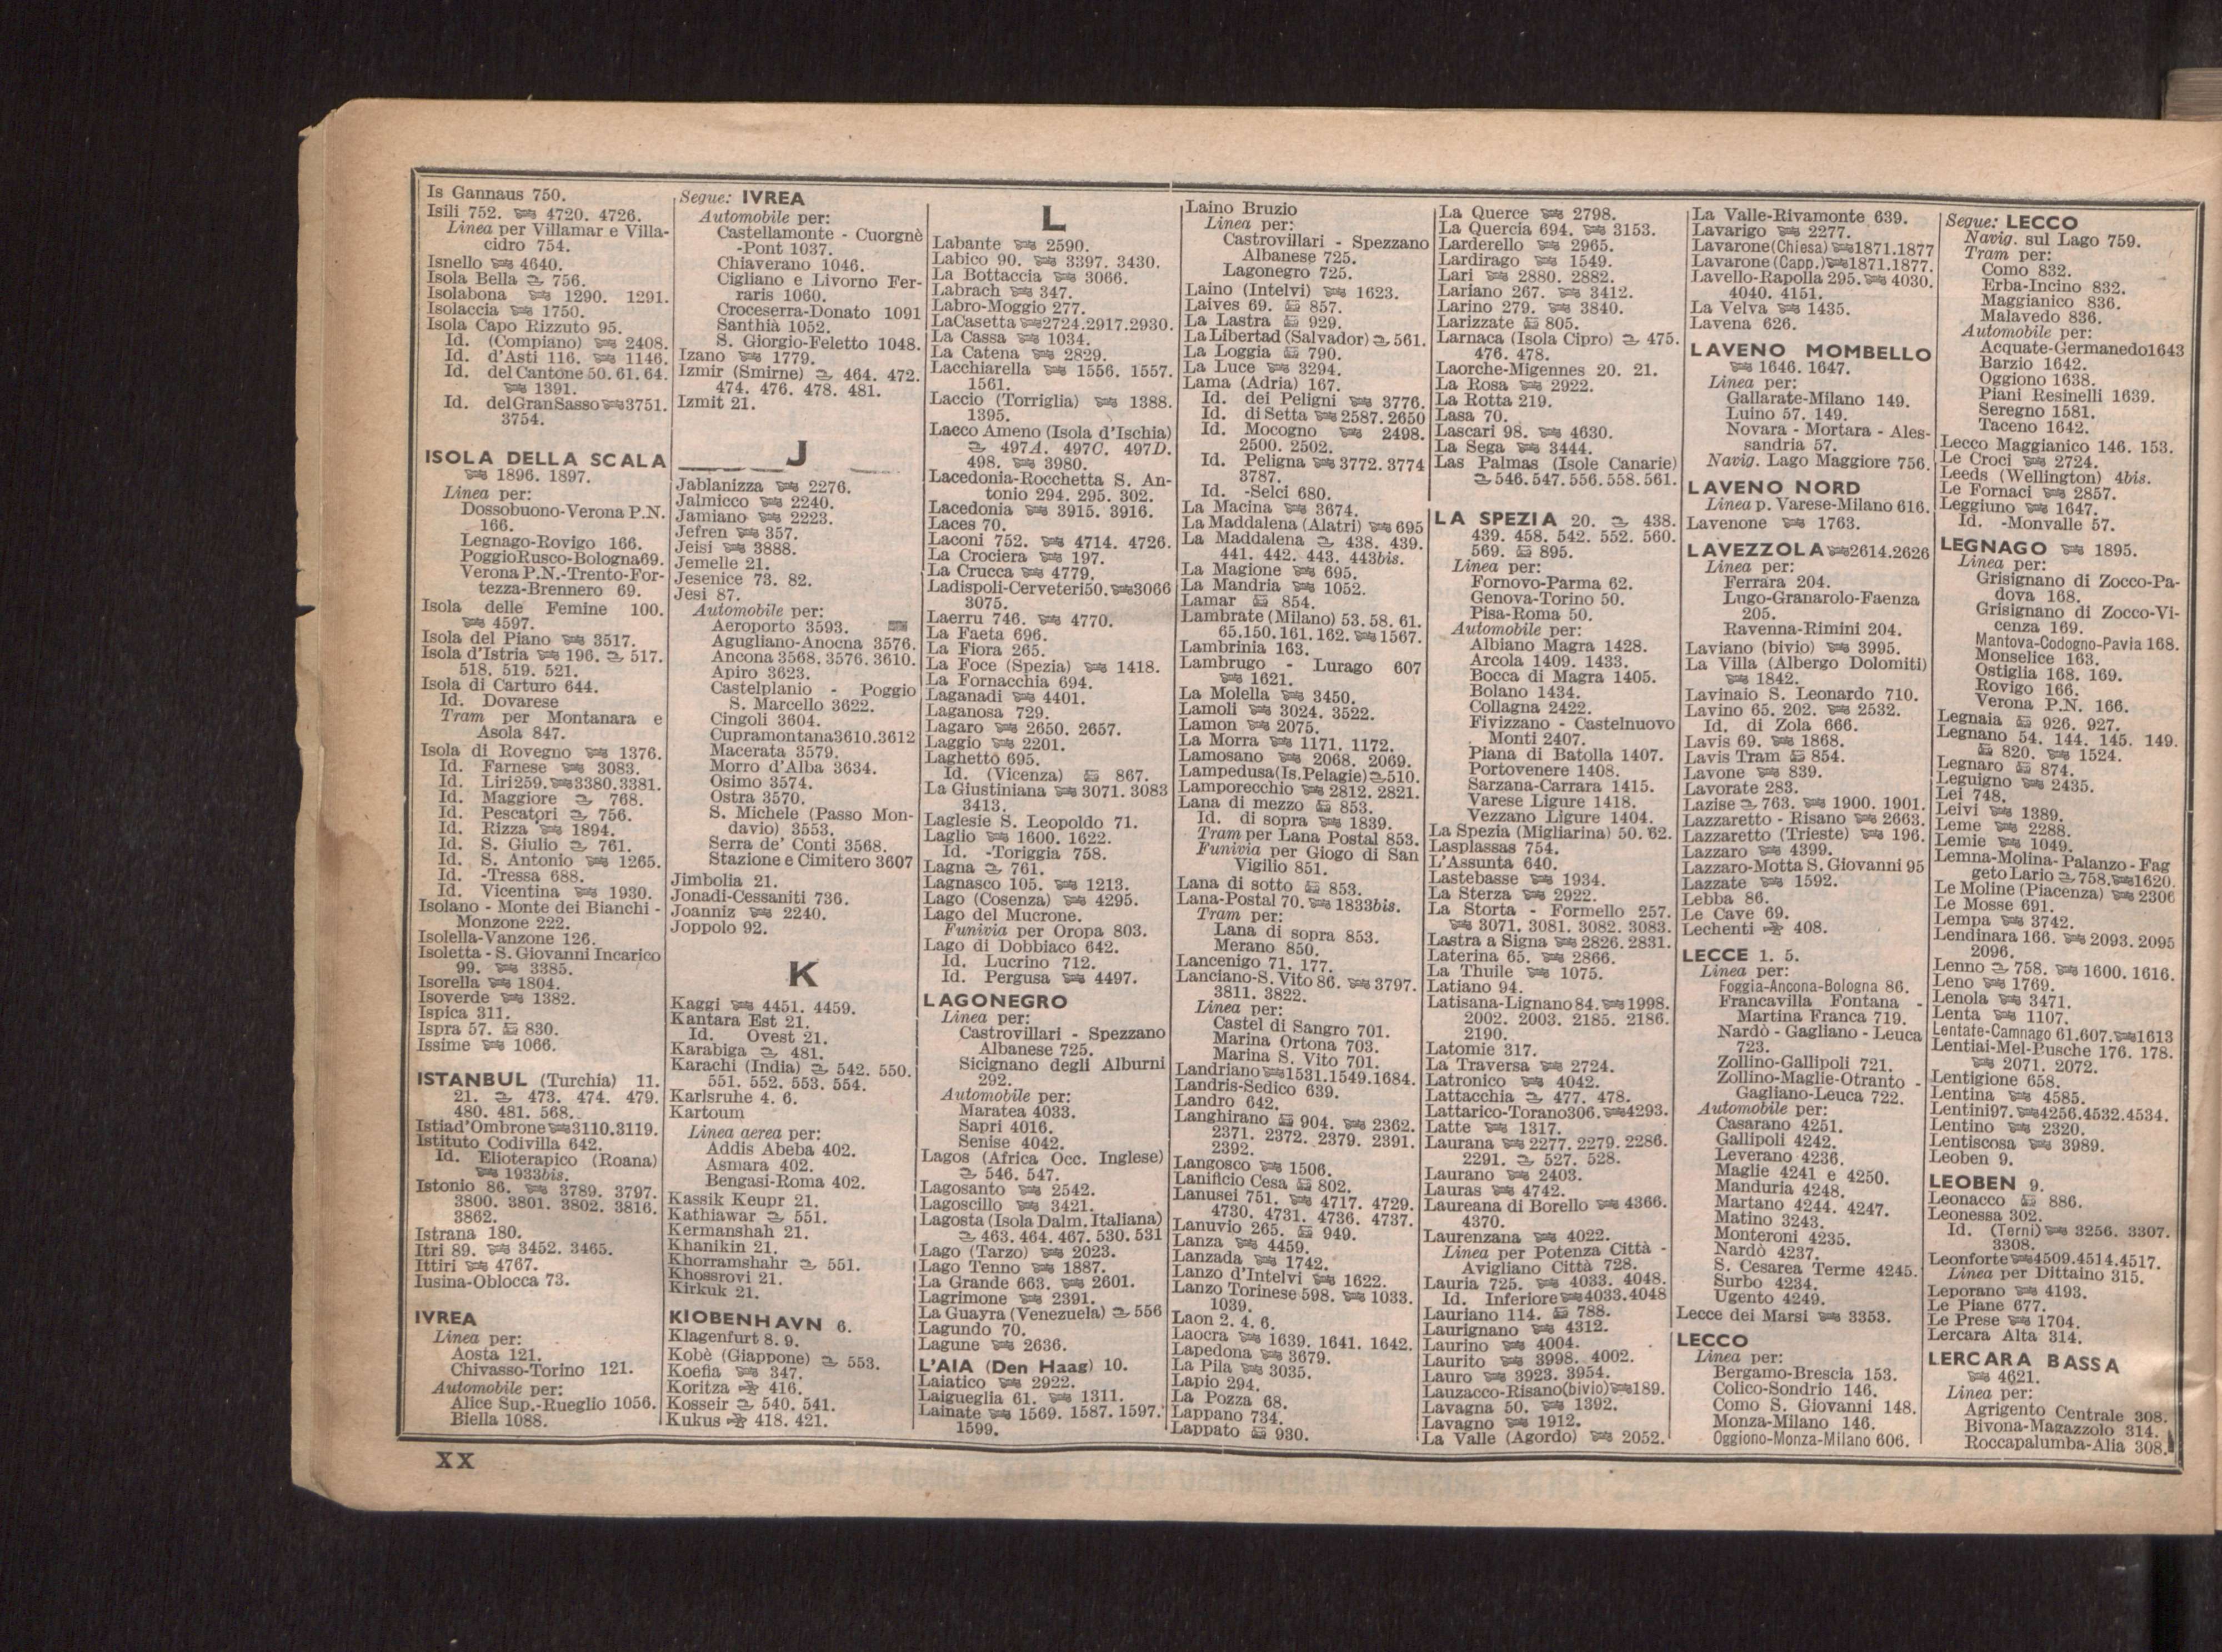 Is Gannaus 750.
Isili 752. 4720. 4726.
Linea per Villamar e Villa-
cidro 754.
Isnello 4640.
Isola Bella 756.
Isolabona 1290. 1291.
Isolaccia 1750.
Isola Capo Rizzuto 95.
Id. (Compiano) 2408.
Id. d'Asti 116. 1146.
Id. del Cantone 50. 61. 64.
1391.
Id. del Gran Sasso 3751.
3754.
ISOLA DELLA SCALA
1896. 1897.
Linea per:
Dossobuono-Verona P.N.
166.
Legnago-Rovigo 166.
Poggio Rusco-Bologna 69.
Verona P.N.-Trento-For-
tezza-Brennero 69.
Isola delle Femine 100.
4597.
Isola del Piano 3517.
Isola d'Istria 196. 517.
518. 519. 521.
Isola di Carturo 644.
Id. Dovarese
Tram per Montanara e
Asola 847.
Isola di Rovegno 1376.
Id. Farnese 3083.
Id. Liri 259. 3380. 3381.
Id. Maggiore 768.
Id. Pescatori 756.
Id. Rizza 1894.
Id. S. Giulio 761.
Id. S. Antonio 1265.
Id. -Tressa 688.
Id. Vicentina 1930.
Isolano - Monte dei Bianchi -
Monzone 222.
Isolella-Vanzone 126.
Isoletta - S. Giovanni Incarico
99. 3385.
Isorella 1804.
Isoverde 1382.
Ispica 311.
Ispra 57. 830.
Issime 1066.
ISTANBUL (Turchia) 11.
21. 473. 474. 479.
480. 481. 568.
Istia d'Ombrone 3110. 3119.
Istituto Codivilla 642.
Id. Elioterapico (Roana)
1933bis.
Istonio 86. 3789. 3797.
3800. 3801. 3802. 3816.
3862.
Istrana 180.
Itri 89. 3452. 3465.
Ittiri 4767.
Iusina-Oblocca 73.
IVREA
Linea per:
Aosta 121.
Chivasso-Torino 121.
Automobile per:
Alice Sup.-Rueglio 1056.
Biella 1088.
Segue: IVREA
Automobile per:
Castellamonte - Cuorgnè
-Pont 1037.
Chiaverano 1046.
Cigliano e Livorno Fer-
raris 1060.
Croceserra-Donato 1091
Santhià 1052.
S. Giorgio-Feletto 1048.
Izano 1779.
Izmir (Smirne) 464. 472.
474. 476. 478. 481.
Izmit 21.
J
Jablanizza 2276.
Jalmicco 2240.
Jamiano 2223.
Jefren 357.
Jeisi 3888.
Jemelle 21.
Jesenice 73. 82.
Jesi 87.
Automobile per:
Aeroporto 3593.
Agugliano-Anocna 3576.
Ancona 3568. 3576. 3610.
Apiro 3623.
Castelplanio - Poggio
S. Marcello 3622.
Cingoli 3604.
Cupramontana 3610. 3612
Macerata 3579.
Morro d'Alba 3634.
Osimo 3574.
Ostra 3570.
S. Michele (Passo Mon-
davio) 3553.
Serra de' Conti 3568.
Stazione e Cimitero 3607
Jimbolia 21.
Jonadi-Cessaniti 736.
Joanniz 2240.
Joppolo 92.
K
Kaggi 4451. 4459.
Kantara Est 21.
Id. Ovest 21.
Karabiga 481.
Karachi (India) 542. 550.
551. 552. 553. 554.
Karlsruhe 4. 6.
Kartoum
Linea aerea per:
Addis Abeba 402.
Asmara 402.
Bengasi-Roma 402.
Kassik Keupr 21.
Kathiawar 551.
Kermanshah 21.
Khanikin 21.
Khorramshahr 551.
Khossrovi 21.
Kirkuk 21.
KIOBENHAVN 6.
Klagenfurt 8. 9.
Kobè (Giappone) 553.
Koefia 347.
Koritza 416.
Kosseir 540. 541.
Kukus 418. 421.
L
Labante 2590.
Labico 90. 3397. 3430.
La Bottaccia 3066.
Labrach 347.
Labro-Moggio 277.
La Casetta 2724. 2917. 2930.
La Cassa 1034.
La Catena 2829.
Lacchiarella 1556. 1557.
1561.
Laccio (Torriglia) 1388.
1395.
Lacco Ameno (Isola d'Ischia)
497A. 497C. 497D.
498. 3980.
Lacedonia-Rocchetta S. An-
tonio 294. 295. 302.
Lacedonia 3915. 3916.
Laces 70.
Laconi 752. 4714. 4726.
La Crociera 197.
La Crucca 4779.
Ladispoli-Cerveteri 50. 3066
3075.
Laerru 746. 4770.
La Faeta 696.
La Fiora 265.
La Foce (Spezia) 1418.
La Fornacchia 694.
Laganadi 4401.
Laganosa 729.
Lagaro 2650. 2657.
Laggio 2201.
Laghetto 695.
Id. (Vicenza) 867.
La Giustiniana 3071. 3083
3413.
Laglesie S. Leopoldo 71.
Laglio 1600. 1622.
Id. -Toriggia 758.
Lagna 761.
Lagnasco 105. 1213.
Lago (Cosenza) 4295.
Lago del Mucrone.
Funivia per Oropa 803.
Lago di Dobbiaco 642.
Id. Lucrino 712.
Id. Pergusa 4497.
LAGONEGRO
Linea per:
Castrovillari - Spezzano
Albanese 725.
Sicignano degli Alburni
292.
Automobile per:
Maratea 4033.
Sapri 4016.
Senise 4042.
Lagos (Africa Occ. Inglese)
546. 547.
Lagosanto 2542.
Lagoscillo 3421.
Lagosta (Isola Dalm. Italiana)
463. 464. 467. 530. 531
Lago (Tarzo) 2023.
Lago Tenno 1887.
La Grande 663. 2601.
Lagrimone 2391.
La Guayra (Venezuela) 556
Lagundo 70.
Lagune 2636.
L'AIA (Den Haag) 10.
Laiatico 2922.
Laigueglia 61. 1311.
Lainate 1569. 1587. 1597.
1599.
Laino Bruzio
Linea per:
Castrovillari - Spezzano
Albanese 725.
Lagonegro 725.
Laino (Intelvi) 1623.
Laives 69. 857.
La Lastra 929.
La Libertad (Salvador) 561.
La Loggia 790.
La Luce 3294.
Lama (Adria) 167.
Id. dei Peligni 3776.
Id. di Setta 2587. 2650
Id. Mocogno 2498.
2500. 2502.
Id. Peligna 3772. 3774
3787.
Id. -Selci 680.
La Macina 3674.
La Maddalena (Alatri) 695
La Maddalena 438. 439.
441. 442. 443. 443bis.
La Magione 695.
La Mandria 1052.
Lamar 854.
Lambrate (Milano) 53. 58. 61.
65. 150. 161. 162. 1567.
Lambrinia 163.
Lambrugo - Lurago 607
1621.
La Molella 3450.
Lamoli 3024. 3522.
Lamon 2075.
La Morra 1171. 1172.
Lamosano 2068. 2069.
Lampedusa (Is. Pelagie) 510.
Lamporecchio 2812. 2821.
Lana di mezzo 853.
Id. di sopra 1839.
Tram per Lana Postal 853.
Funivia per Giogo di San
Vigilio 851.
Lana di sotto 853.
Lana-Postal 70. 1833bis.
Tram per:
Lana di sopra 853.
Merano 850.
Lancenigo 71. 177.
Lanciano-S. Vito 86. 3797.
3811. 3822.
Linea per:
Castel di Sangro 701.
Marina Ortona 703.
Marina S. Vito 701.
Landriano 1531. 1549. 1684.
Landris-Sedico 639.
Landro 642.
Langhirano 904. 2362.
2371. 2372. 2379. 2391.
2392.
Langosco 1506.
Lanificio Cesa 802.
Lanusei 751. 4717. 4729.
4730. 4731. 4736. 4737.
Lanuvio 265. 949.
Lanza 4459.
Lanzada 1742.
Lanzo d'Intelvi 1622.
Lanzo Torinese 598. 1033.
1039.
Laon 2. 4. 6.
Laocra 1639. 1641. 1642.
Lapedona 3679.
La Pila 3035.
Lapio 294.
La Pozza 68.
Lappano 734.
Lappato 930.
La Querce 2798.
La Quercia 694. 3153.
Larderello 2965.
Lardirago 1549.
Lari 2880. 2882.
Lariano 267. 3412.
Larino 279. 3840.
Larizzate 805.
Larnaca (Isola Cipro) 475.
476. 478.
Laorche-Migennes 20. 21.
La Rosa 2922.
La Rotta 219.
Lasa 70.
Lascari 98. 4630.
La Sega 3444.
Las Palmas (Isole Canarie)
546. 547. 556. 558. 561.
LA SPEZIA 20. 438.
439. 458. 542. 552. 560.
569. 895.
Linea per:
Fornovo-Parma 62.
Genova-Torino 50.
Pisa-Roma 50.
Automobile per:
Albiano Magra 1428.
Arcola 1409. 1433.
Bocca di Magra 1405.
Bolano 1434.
Collagna 2422.
Fivizzano - Castelnuovo
Monti 2407.
Piana di Batolla 1407.
Portovenere 1408.
Sarzana-Carrara 1415.
Varese Ligure 1418.
Vezzano Ligure 1404.
La Spezia (Migliarina) 50. 62.
Lasplassas 754.
L'Assunta 640.
Lastebasse 1934.
La Sterza 2922.
La Storta - Formello 257.
3071. 3081. 3082. 3083.
Lastra a Signa 2826. 2831.
Laterina 65. 2866.
La Thuile 1075.
Latiano 94.
Latisana-Lignano 84. 1998.
2002. 2003. 2185. 2186.
2190.
Latomie 317.
La Traversa 2724.
Latronico 4042.
Lattacchia 477. 478.
Lattarico-Torano 306. 4293.
Latte 1317.
Laurana 2277. 2279. 2286.
2291. 527. 528.
Laurano 2403.
Lauras 4742.
Laureana di Borello 4366.
4370.
Laurenzana 4022.
Linea per Potenza Città -
Avigliano Città 728.
Lauria 725. 4033. 4048.
Id. Inferiore 4033. 4048
Lauriano 114. 788.
Laurignano 4312.
Laurino 4004.
Laurito 3998. 4002.
Lauro 3923. 3954.
Lauzacco-Risano (bivio) 189.
Lavagna 50. 1392.
Lavagno 1912.
La Valle (Agordo) 2052.
La Valle-Rivamonte 639.
Lavarigo 2277.
Lavarone (Chiesa) 1871. 1877
Lavarone (Capp.) 1871. 1877.
Lavello-Rapolla 295. 4030.
4040. 4151.
La Velva 1435.
Lavena 626.
LAVENO MOMBELLO
1646. 1647.
Linea per:
Gallarate-Milano 149.
Luino 57. 149.
Novara - Mortara - Ales-
sandria 57.
Navig. Lago Maggiore 756.
LAVENO NORD
Linea p. Varese-Milano 616.
Lavenone 1763.
LAVEZZOLA 2614. 2626
Linea per:
Ferrara 204.
Lugo-Granarolo-Faenza
205.
Ravenna-Rimini 204.
Laviano (bivio) 3995.
La Villa (Albergo Dolomiti)
1842.
Lavinaio S. Leonardo 710.
Lavino 65. 202. 2532.
Id. di Zola 666.
Lavis 69. 1868.
Lavis Tram 854.
Lavone 839.
Lavorate 283.
Lazise 763. 1900. 1901.
Lazzaretto - Risano 2663.
Lazzaretto (Trieste) 196.
Lazzaro 4399.
Lazzaro-Motta S. Giovanni 95
Lazzate 1592.
Lebba 86.
Le Cave 69.
Lechenti 408.
LECCE 1. 5.
Linea per:
Foggia-Ancona-Bologna 86.
Francavilla Fontana -
Martina Franca 719.
Nardò - Gagliano - Leuca
723.
Zollino-Gallipoli 721.
Zollino-Maglie-Otranto -
Gagliano-Leuca 722.
Automobile per:
Casarano 4251.
Gallipoli 4242.
Leverano 4236.
Maglie 4241 e 4250.
Manduria 4248.
Martano 4244. 4247.
Matino 3243.
Monteroni 4235.
Nardò 4237.
S. Cesarea Terme 4245.
Surbo 4234.
Ugento 4249.
Lecce dei Marsi 3353.
LECCO
Linea per:
Bergamo-Brescia 153.
Colico-Sondrio 146.
Como S. Giovanni 148.
Monza-Milano 146.
Oggiono-Monza-Milano 606.
Segue: LECCO
Navig. sul Lago 759.
Tram per:
Como 832.
Erba-Incino 832.
Maggianico 836.
Malavedo 836.
Automobile per:
Acquate-Germanedo 1643
Barzio 1642.
Oggiono 1638.
Piani Resinelli 1639.
Seregno 1581.
Taceno 1642.
Lecco Maggianico 146. 153.
Le Croci 2724.
Leeds (Wellington) 4bis.
Le Fornaci 2857.
Leggiuno 1647.
Id. -Monvalle 57.
LEGNAGO 1895.
Linea per:
Grisignano di Zocco-Pa-
dova 168.
Grisignano di Zocco-Vi-
cenza 169.
Mantova-Codogno-Pavia 168.
Monselice 163.
Ostiglia 168. 169.
Rovigo 166.
Verona P.N. 166.
Legnaia 926. 927.
Legnano 54. 144. 145. 149.
820. 1524.
Legnaro 874.
Leguigno 2435.
Lei 748.
Leivi 1389.
Leme 2288.
Lemie 1049.
Lemna-Molina- Palanzo - Fag
geto Lario 758. 1620.
Le Moline (Piacenza) 2306
Le Mosse 691.
Lempa 3742.
Lendinara 166. 2093. 2095
2096.
Lenno 758. 1600. 1616.
Leno 1769.
Lenola 3471.
Lenta 1107.
Lentate-Camnago 61. 607. 1613
Lentiai-Mel-Busche 176. 178.
2071. 2072.
Lentigione 658.
Lentina 4585.
Lentini 97. 4256. 4532. 4534.
Lentino 2320.
Lentiscosa 3989.
Leoben 9.
LEOBEN 9.
Leonacco 886.
Leonessa 302.
Id. (Terni) 3256. 3307.
3308.
Leonforte 4509. 4514. 4517.
Linea per Dittaino 315.
Leporano 4193.
Le Piane 677.
Le Prese 1704.
Lercara Alta 314.
LERCARA BASSA
4621.
Linea per:
Agrigento Centrale 308.
Bivona-Magazzolo 314.
Roccapalumba-Alia 308.
XX